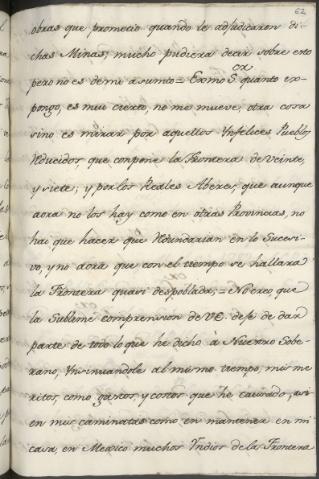 62
obras que prometio quando le adjudicaron di-
chas Minas; mucho pudiera decir sobre esto
pero no es de mi asumto = Exmo Sor quanto ex-
pongo, es mui cierto, no me mueve otra cosa
sino es mirar por aquellos Ynfelices Pueblos
Reducidos, que conpone la Frontera de veinte,
y siete; y por los Reales Aberes, que aunque
aora no los hay como en otras Provincias, no
hai que hacer que Redundarian en lo Sucesi-
vo, y no aora que con el tiempo se hallara
la Frontera quasi despoblada, = No creo, que
la Sublime comprension de V.E. deje de dar
parte de todo lo que he dicho à Nuestro Sobe-
rano, Ynsinuandole al mismo tiempo, mis me-
ritos, como gastos, y costos que he causado, asi
en mis caminatas como en mantener en mi
casa, en Mexico muchos Yndios de la Frontera